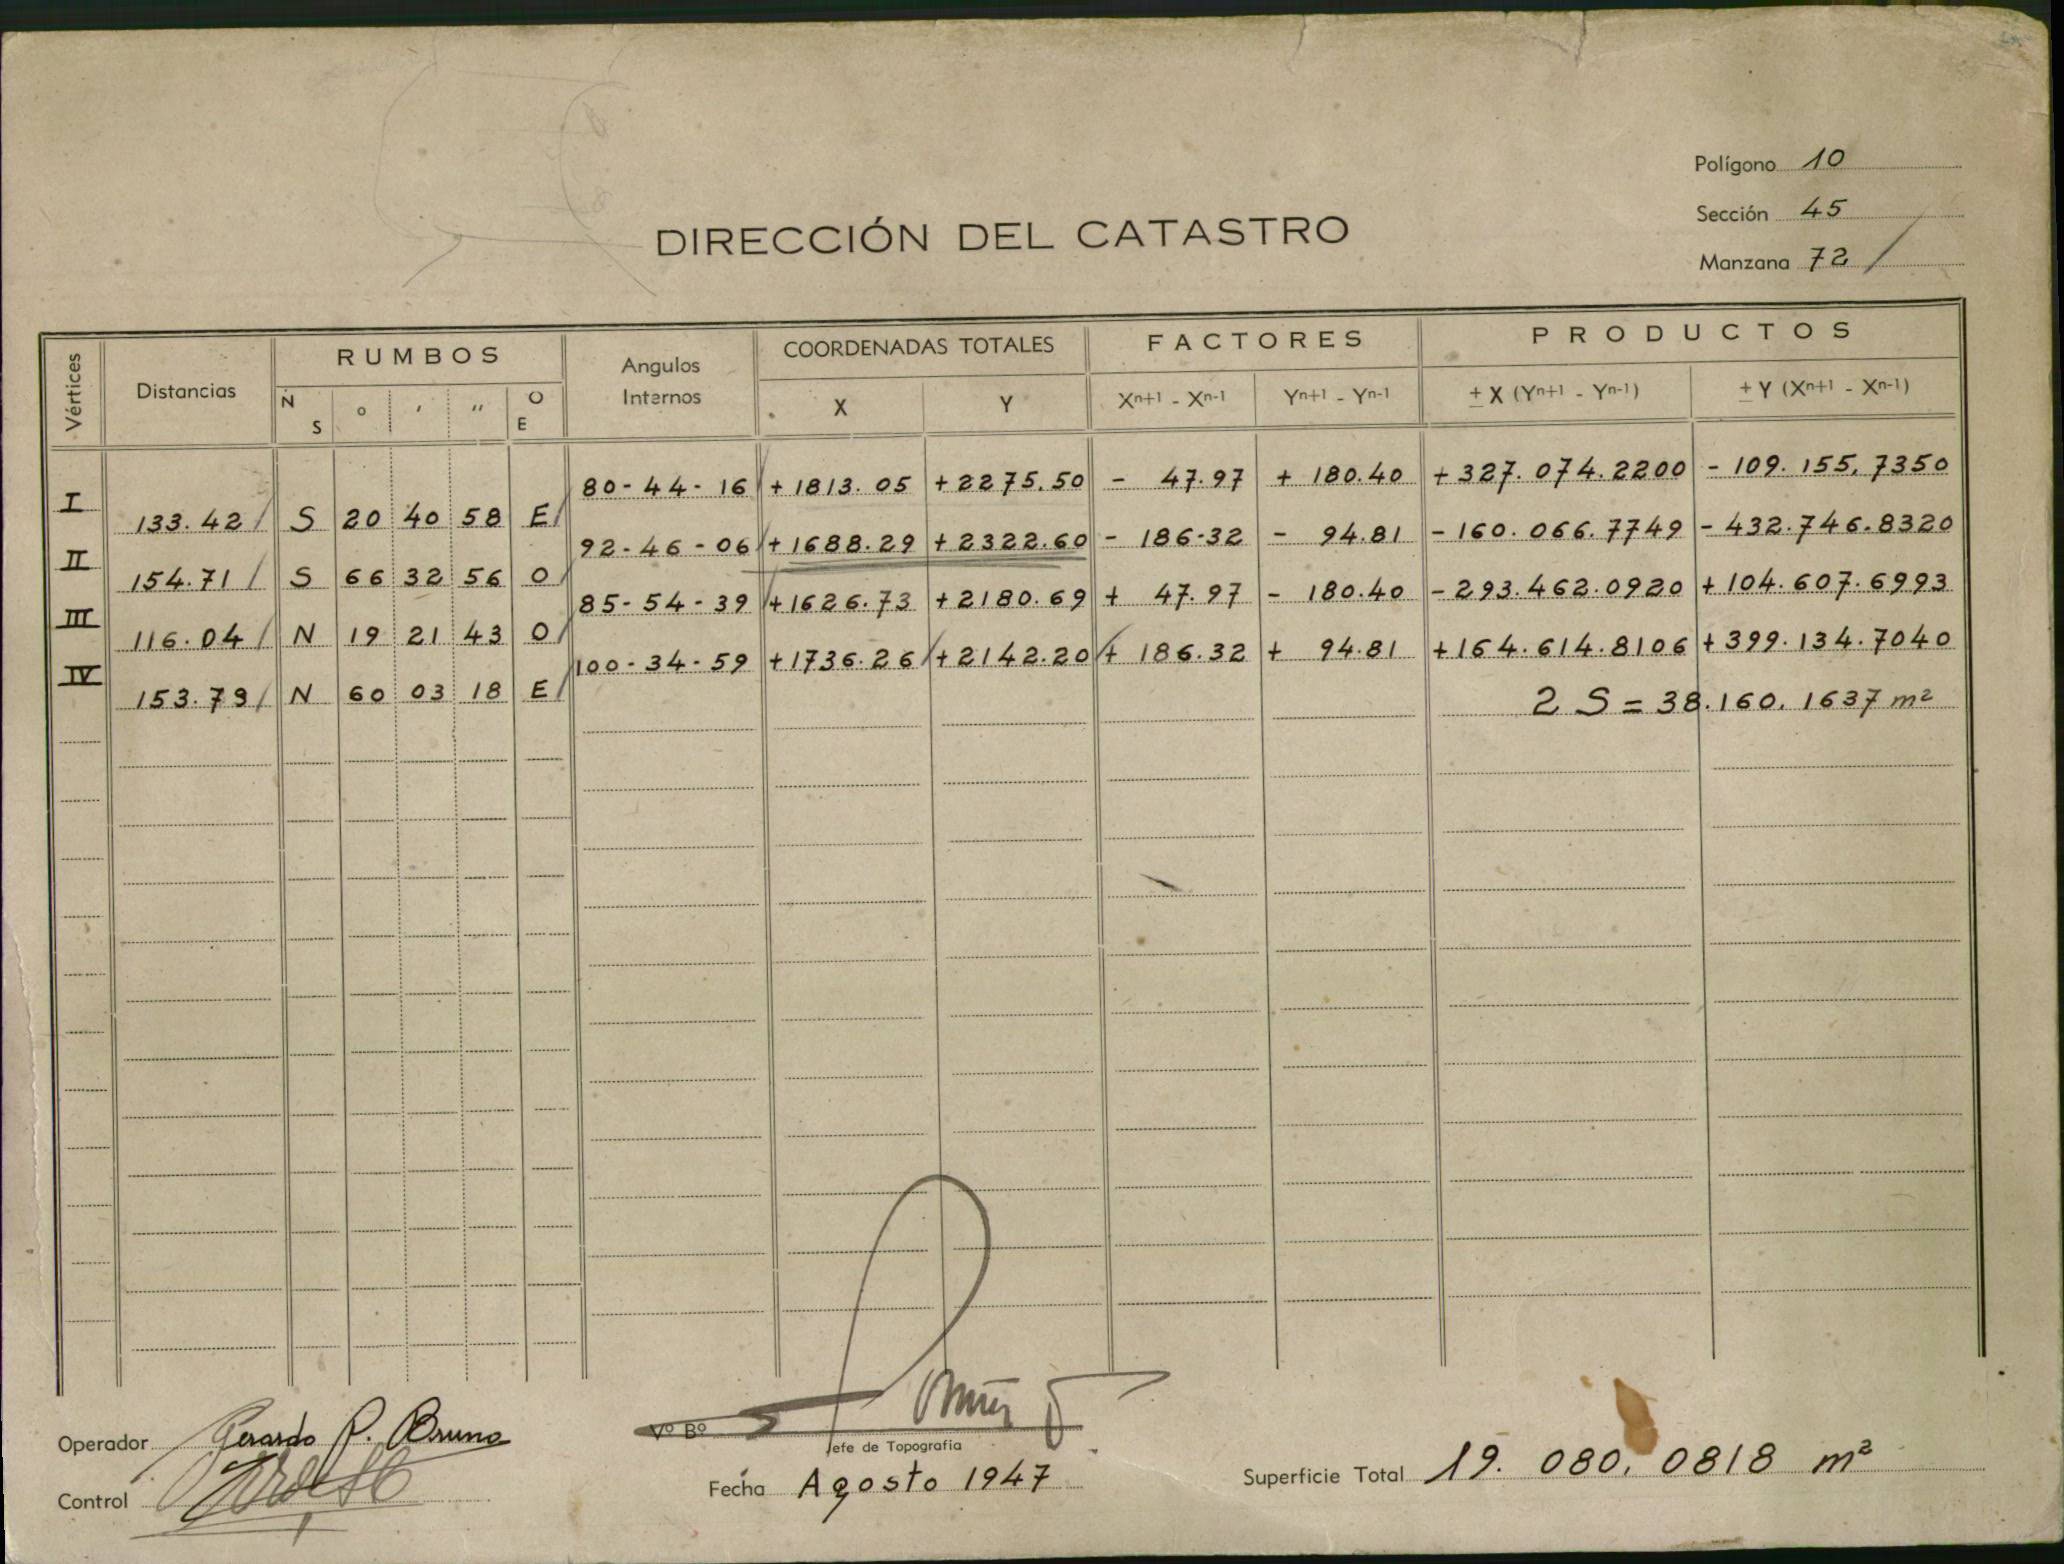 Polígono 10
Sección 45
DIRECCIÓN DEL CATASTRO
Manzana 72
Vértices Distancias RUMBOS Angulos Internos COORDENADAS TOTALES FACTORES PRODUCTOS
N S ° ′ ″ O E X Y Xⁿ⁺¹ - Xⁿ⁻¹ Yⁿ⁺¹ - Yⁿ⁻¹ ± X (Yⁿ⁺¹ - Yⁿ⁻¹) ± Y (Xⁿ⁺¹ - Xⁿ⁻¹)
I 80-44-16 +1813.05 +2275.50 - 47.97 + 180.40 +327.074.2200 -109.155,7350
133.42 S 20 40 58 E
II 92-46-06 +1688.29 +2322.60 - 186.32 - 94.81 -160.066.7749 -432.746.8320
154.71 S 66 32 56 O
III 85-54-39 +1626.73 +2180.69 + 47.97 - 180.40 -293.462.0920 +104.607.6993
116.04 N 19 21 43 O
IV 100-34-59 +1736.26 +2142.20 + 186.32 + 94.81 +164.614.8106 +399.134.7040
153.79 N 60 03 18 E
2 S = 38.160,1637 m²
Operador Gerardo P. Bruno
Vº Bº
Jefe de Topografía
Control
Fecha Agosto 1947
Superficie Total 19.080,0818 m²